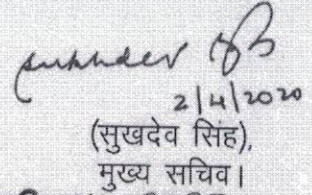 sukhdev
2/4/2020
(सुखदेव सिंह),
मुख्य सचिव।